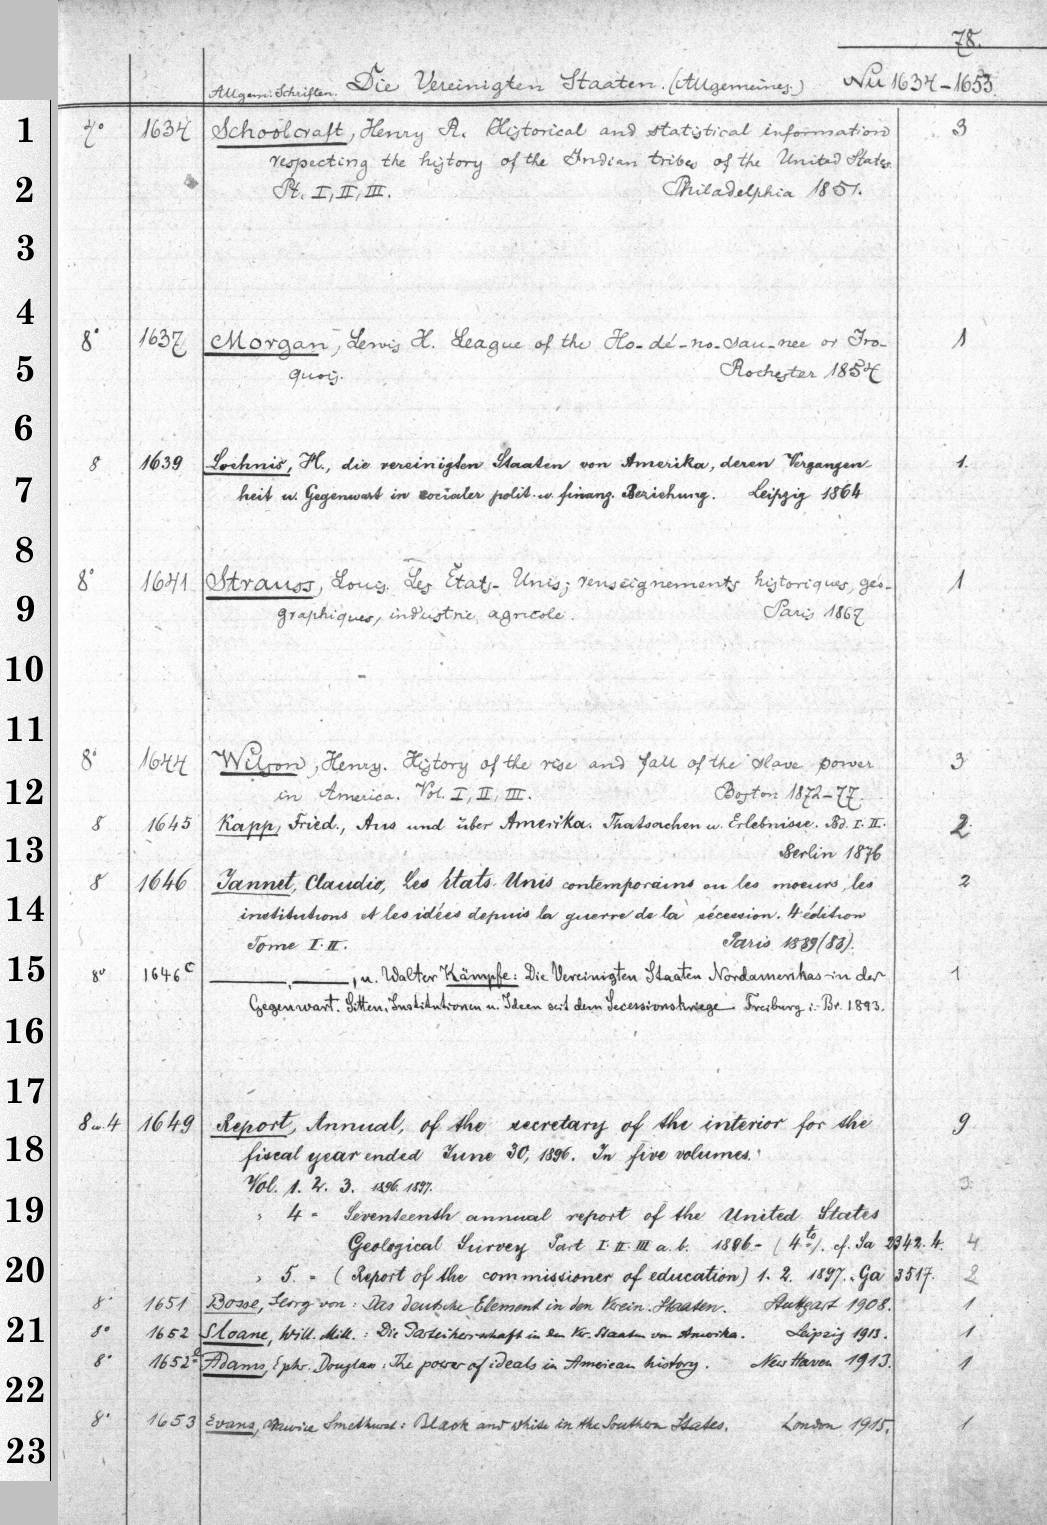 78.
Allgem. Schriften. Die Vereinigten Staaten. (Allgemeines.) Nu 1634-1653
1
4° 1634 Schoolcraft, Henry R. Historical and statistical information 3
respecting the history of the Indian tribes of the United States.
2
Pt. I, II, III. Philadelphia 1851.
3
4
8° 1637 Morgan, Lewis H. League of the Ho-dé-no-sau-nee or Iro- 1
5
quois. Rochester 1854
6
8 1639 Lochnis, H., die vereinigten Staaten von Amerika, deren Vergangen- 1.
7
heit u. Gegenwart in socialer polit. u. finanz. Beziehung. Leipzig 1864
8
8° 1641 Strauss, Louis. Les États-Unis; renseignements historiques, géo- 1
9
graphiques, industrie, agricole. Paris 1867
10
11
8° 1644 Wilson, Henry. History of the rise and fall of the slave power 3
12
in America. Vol. I, II, III. Boston 1872-77.
8 1645 Kapp, Fried., Aus und über Amerika. Thatsachen u. Erlebnisse. Bd. I. II. 2
13
Berlin 1876
8 1646 Jannet, Claudio, Les états-Unis contemporains ou les moeurs, les 2
14
institutions et les idées depuis la guerre de la sécession. 4 édition
Tome I. II. Paris 1889 (83).
15
8° 1646c ———, ———, u. Walter Kämpfe: Die Vereinigten Staaten Nordamerikas in der 1
Gegenwart. Sitten, Institutionen u. Ideen seit dem Secessionskriege Freiburg i. Br. 1893.
16
17
8 u. 4 1649 Report, Annual, of the secretary of the interior for the 9
18
fiscal year ended June 30, 1896. In five volumes.
Vol. 1. 2. 3. 1896. 1897. 3
19
" 4 = Seventeenth annual report of the United States
Geological Survey Part I. II. III a. b. 1896- (4to). cf. Sa 2342. 4. 4
20
" 5. = (Report of the commissioner of education) 1. 2. 1897. Ga 3517. 2
8° 1651 Bosse, Georg von: Das deutsche Element in den Verein. Staaten. Stuttgart 1908. 1
21
8° 1652 Sloane, Will. Mill.: Die Parteiherrschaft in den Ver. Staaten von Amerika. Leipzig 1913. 1
8° 1652a Adams, Ephr. Douglas: The power of ideals in American history. New Haven 1913. 1
22
8° 1653 Evans, Maurice Smethurst: Black and white in the Southern States. London 1915. 1
23